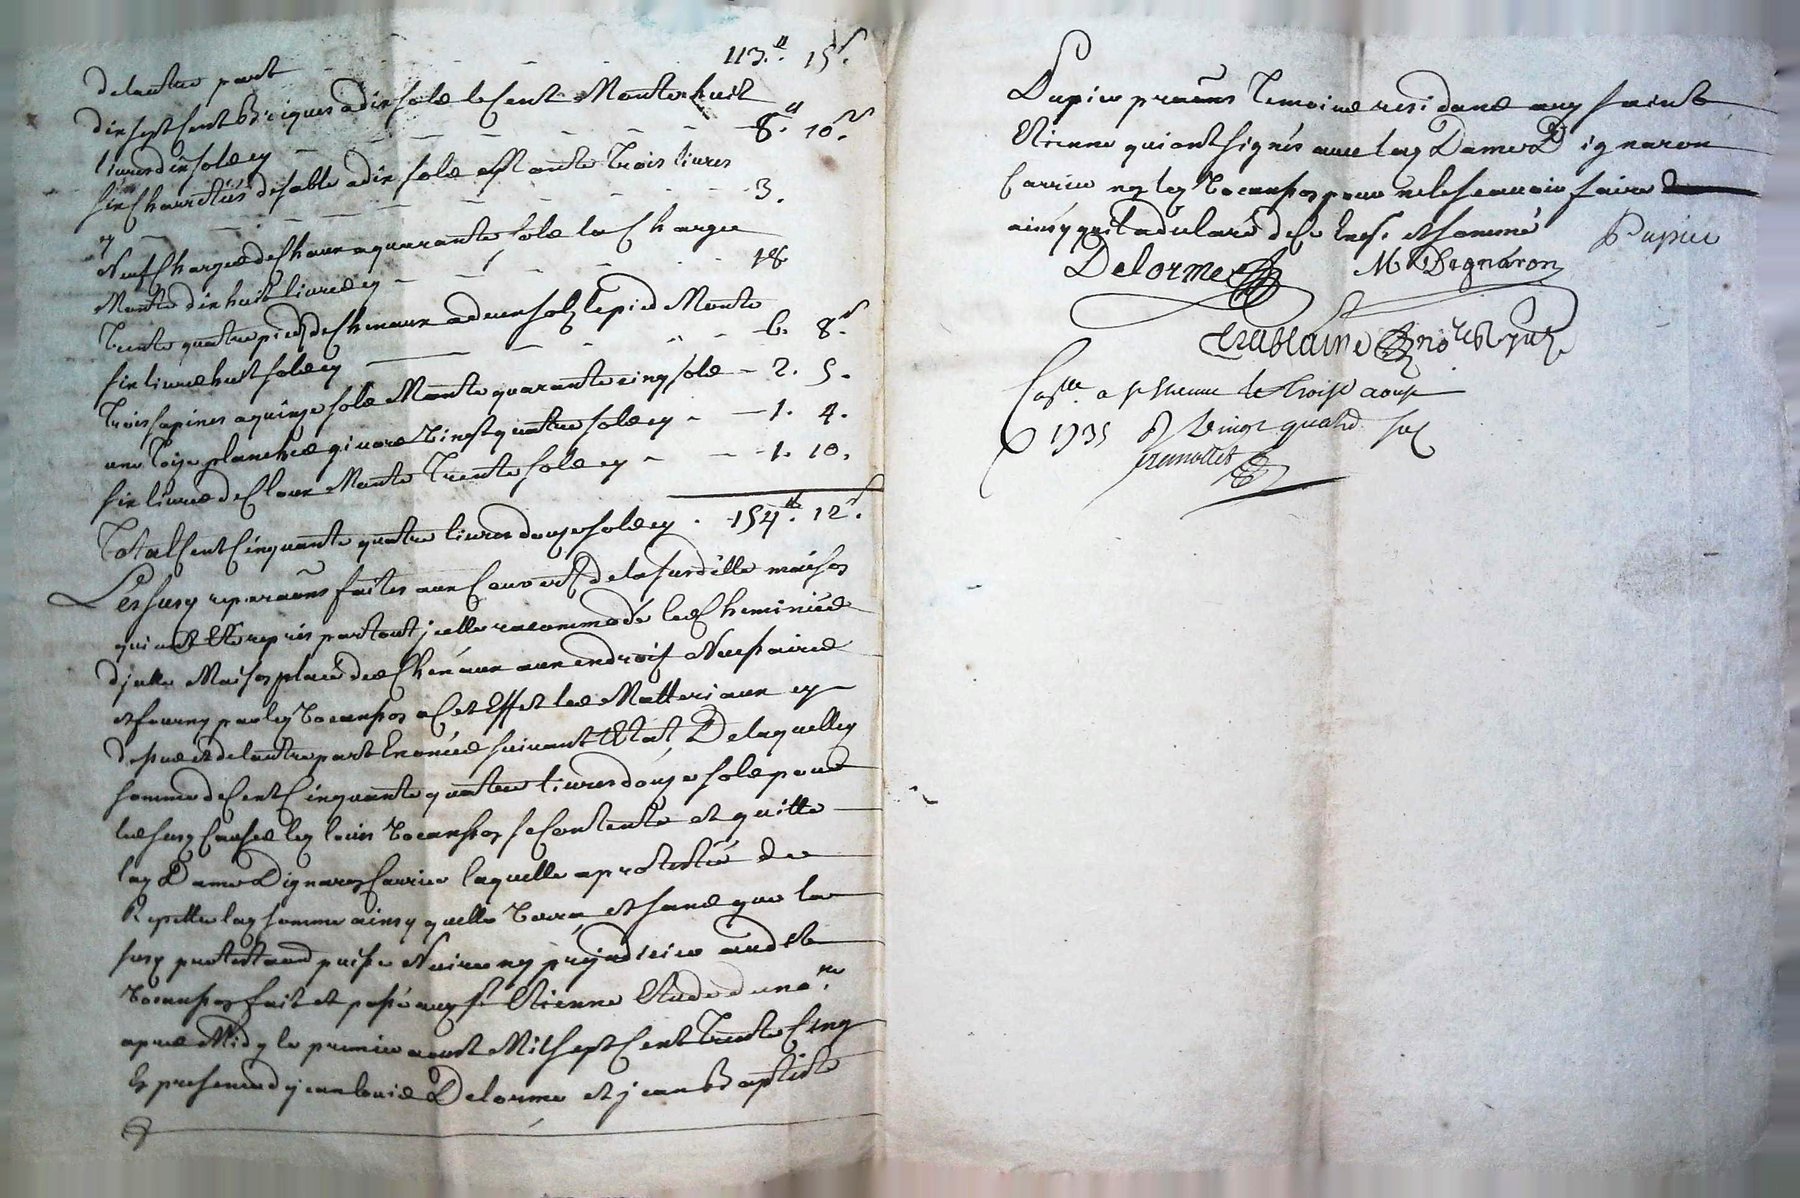 de lautre part - - - - - 113.ᵗᵗ 15.ˢ
dix sept Cent Briques a dix sols le Cent Monte huit
livres dix sols cy - - - - - 8.ᵗᵗ 10.ˢ
six Charretées de sable a dix sols Monte trois livres
cy - - - - - 3.
Neuf Charges de Chaux a quarante sols la Charge
Monte dix huit livres cy - - - - - 18
Trente quatre pieds de Cheneaux a deux sols le pied Monte
six livres huit sols cy - - - - - 6. 8.ˢ
Trois sapines a quinze sols Monte quarante cinq sols - 2. 5.
une toise planches vingt quatre sols cy - - 1. 4.
six livres de Cloux Monte Trente sols cy - - 1. 10.
Total Cent Cinquante quatre livres douze sols cy . 154.ᵗᵗ 12.ˢ
Les susd reparaons faites aux Couverts de la susditte maison
qui ont Ette repris par tout jcelle racommodé les Cheminées
djcelle Maison placé des Cheneaux aux endroits Necessaires
et fourny par led a Cet Effet les Matteriaux cy
dessus et de lautre part Enoncés suivant Etat De laquelle
somme de Cent Cinquante quatre livres douze sols pour
les susd Causes led louis se Contente et quitte
lad Dame Dignaron Carrier laquelle a protesté de
Repetter lad somme ainsy quelle verra et sans que la
susd protestaon puisse Nuire ny prejudicier audt
fait et passé aud St Etienne Etude du noʳᵉ
apres Midy le premier aoust Mil sept Cent Trente Cinq
En presence de jean louis Delorme et jean Baptiste
Pupier praticiens Temoins residans aud saint
Etienne qui ont signés avec lad Dame Dignaron
Carrier non led pour ne le scavoir faire
ainsy quil a declaré de Ce Enqs. et sommé
Pupier
Delorme M Dignaron
Crablaine noʳᵉ Royal
Collé a St Etienne le Trois aoust
1735 R vingt quatre sols